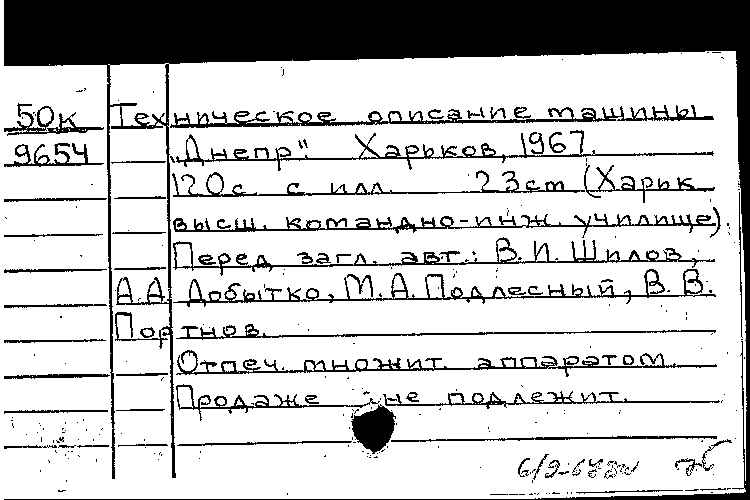 50к Техническое описание машины
9654 „Днепр". Харьков, 1967.
120с. с илл. 23cm (Харьк
высш. командно-инж. училище).
Перед загл. авт.: В.И. Шилов,
А.А. Добытко, М.А. Подлесный, В.В.
Портнов.
Отпеч. множит. аппаратом.
Продаже не подлежит.